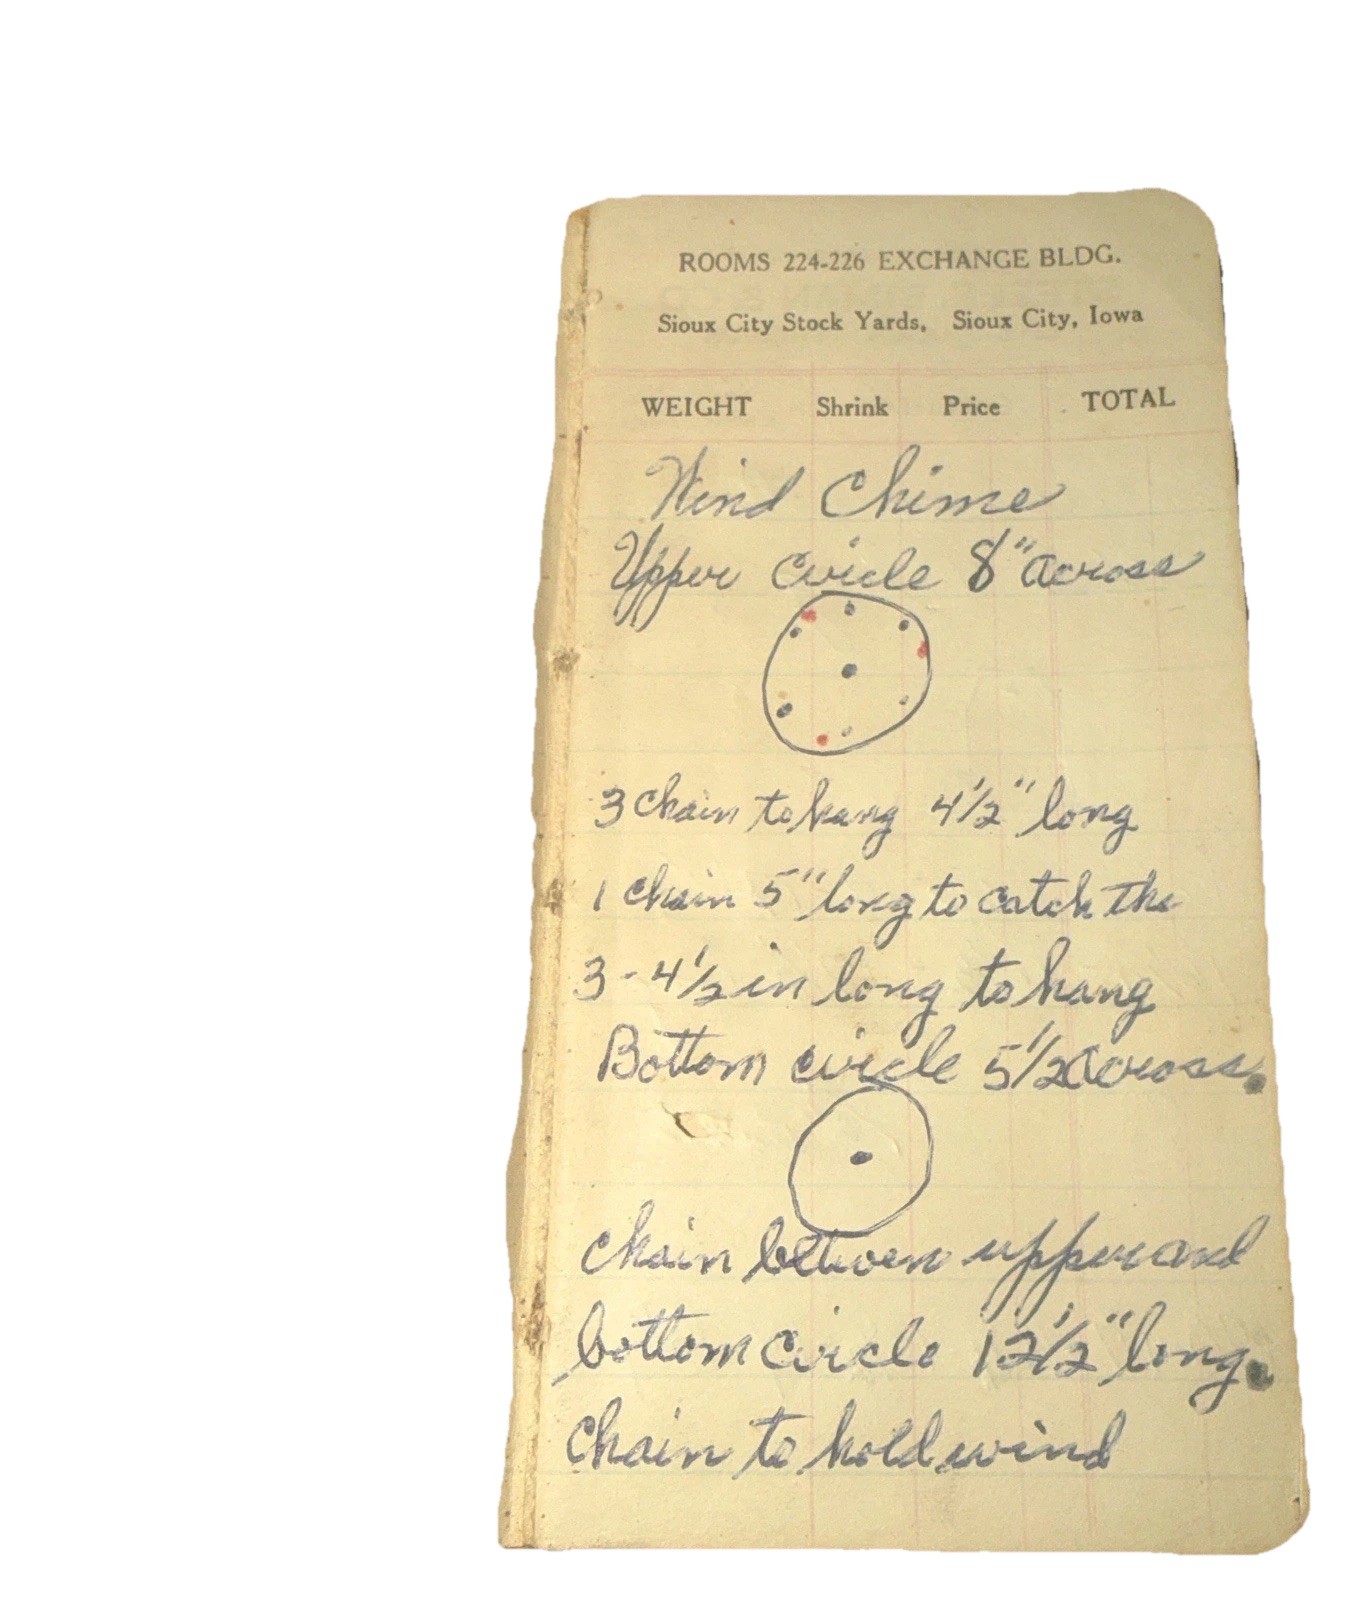 ROOMS 224-226 EXCHANGE BLDG.
Sioux City Stock Yards, Sioux City, Iowa
WEIGHT Shrink Price TOTAL
Wind Chime
Upper circle 8" across
3 chain to hang 4 1/2" long
1 chain 5" long to catch the
3 - 4 1/2 in long to hang
Bottom circle 5 1/2 across.
chain between upper and
bottom circle 12 1/2" long.
chain to hold wind